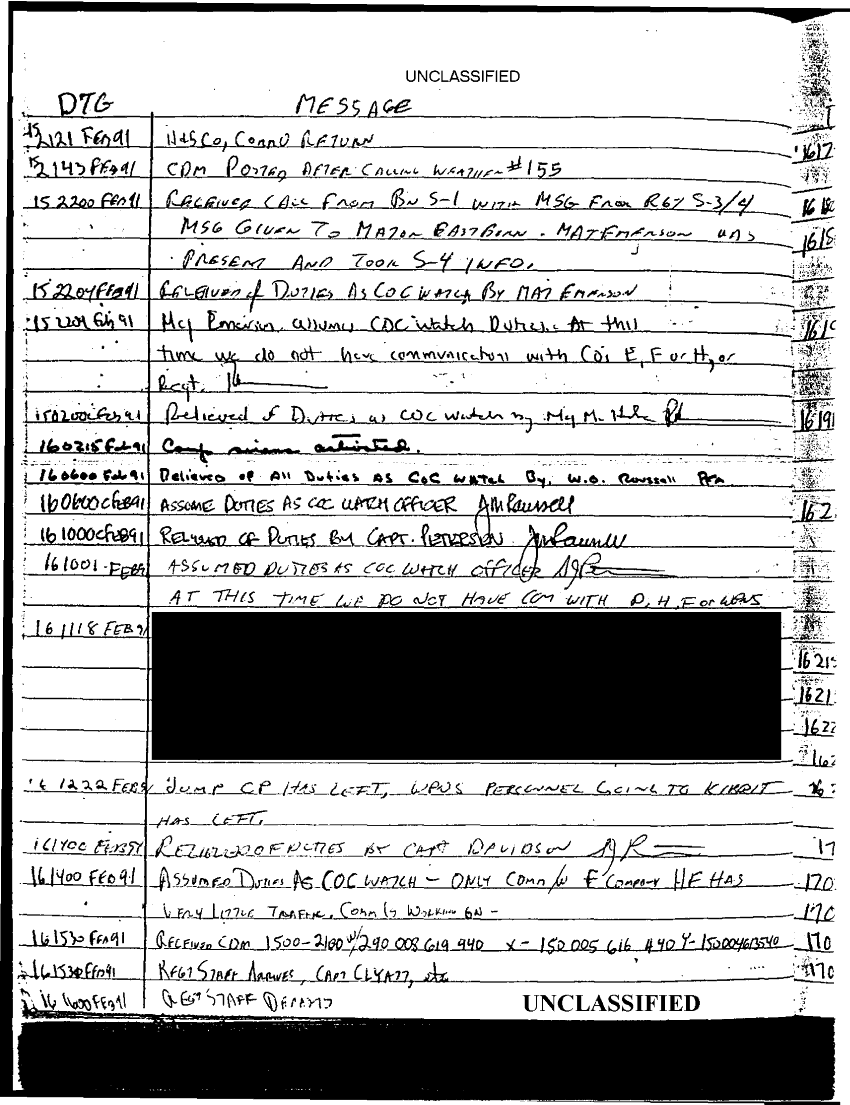 UNCLASSIFIED
DTG MESSAGE
152121 FEB91 H&SCo, COMM RETURN
152143 FEB91 CDM POSTED AFTER CALLING WEATHER #155
15 2200 FEB91 RECEIVED CALL FROM BN S-1 WITH MSG FROM REGT S-3/4
MSG GIVEN TO MAJOR EASTBURN. MAJ EMERSON WAS
PRESENT AND TOOK S-4 INFO.
15 2204 FEB91 RELIEVED of DUTIES AS COC WATCH BY MAJ EMERSON
15 2204 Feb 91 Maj Emerson assumes COC Watch Duties. At this
time we do not have communication with Co's E, F or H, or
Regt.
Relieved of Duties as COC Watch by Maj
160215 Feb 91 Camp sirens activated.
160600 Feb 91 Relieved of All Duties AS COC WATCH By, W.O. Roussell
160600C FEB91 ASSUME DUTIES AS COC WATCH OFFICER
161000C FEB91 RELIEVED OF DUTIES BY CAPT. PETERSEN
161001 FEB91 ASSUMED DUTIES AS COC WATCH OFFICER
AT THIS TIME WE DO NOT HAVE COM WITH D, H, F or WPNS
161118 FEB 91
16 1222 FEB91 JUMP CP HAS LEFT, WPNS PERSONNEL GOING TO KIBRIT
HAS LEFT.
161400 FEB91 RELIEVED OF DUTIES BY CAPT DAVIDSON
161400 FEB91 ASSUMED DUTIES AS COC WATCH - ONLY COMM W/ E COMPANY HF HAS
VERY LITTLE TRAFFIC, COMM IS WORKING ON -
161530 FEB91 RECEIVED CDM 1500-2100 W/ 290 008 619 940 X- 150 005 616 440 Y- 150004613540
161530 FEB91 REGT STAFF ARRIVES, CAPT CLYATT, etc
16 1600 FEB91 REGT STAFF DEPARTS
UNCLASSIFIED